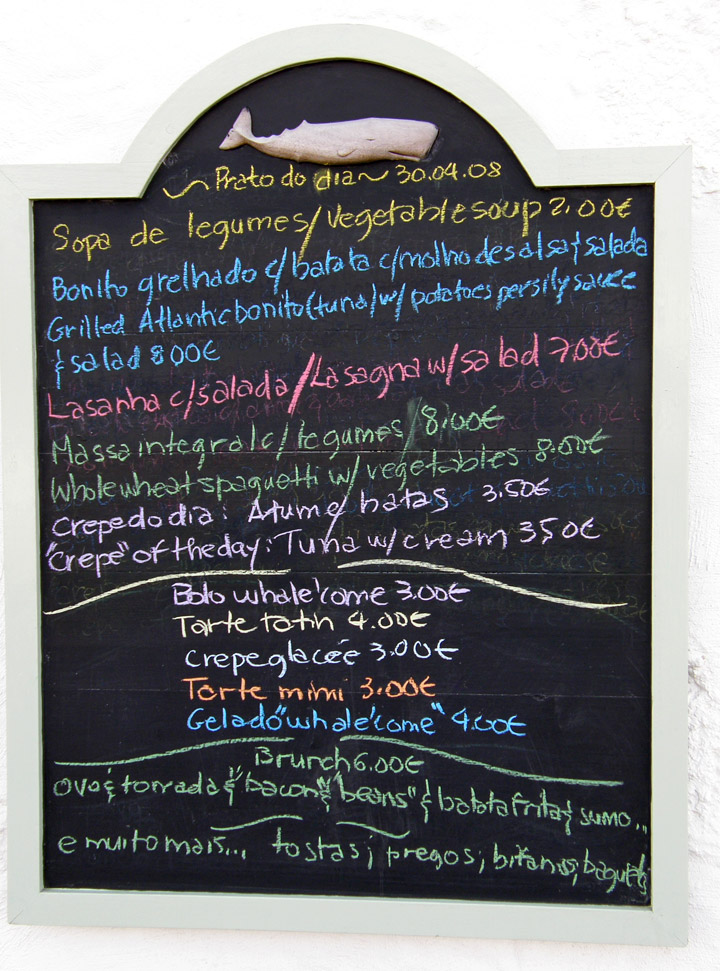 Prato do dia ~ 30.04.08
Sopa de legumes/vegetable soup 2.00€
Bonito grelhado c/batata c/molho de salsa & salada
Grilled Atlantic bonito (tuna) w/ potatoes persily sauce
& salad 8.00€
Lasanha c/salada/Lasagna w/salad 7.00€
Massa integral c/legumes/8.00€
Whole wheat spaguetti w/vegetables 8.00€
Crepe do dia: Atum e/ natas 3.50€
"Crepe" of the day: Tuna w/cream 3.50€
Bolo whale'come 3.00€
Tarte tatin 4.00€
Crepe glacée 3.00€
Tarte mimi 3.00€
Gelado "whale'come" 4.00€
Brunch 6.00€
ovo & torrada & "bacon" & "beans" & batata frita & sumo...
e muito mais... tostas; pregos; bifanas; baguetes